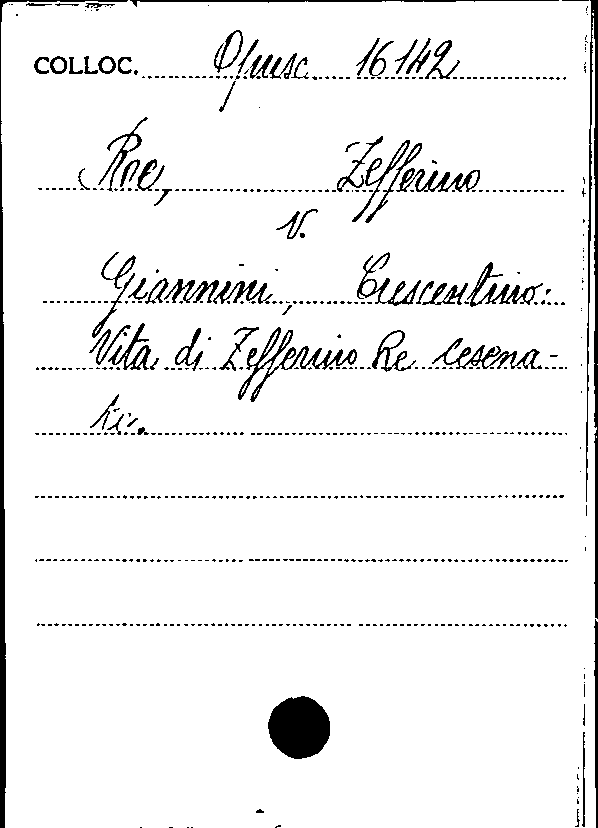 COLLOC. Opusc. 16142
Re, Zefferino
v.
Giannini, Crescentino:
Vita di Zefferino Re cesena-
te.